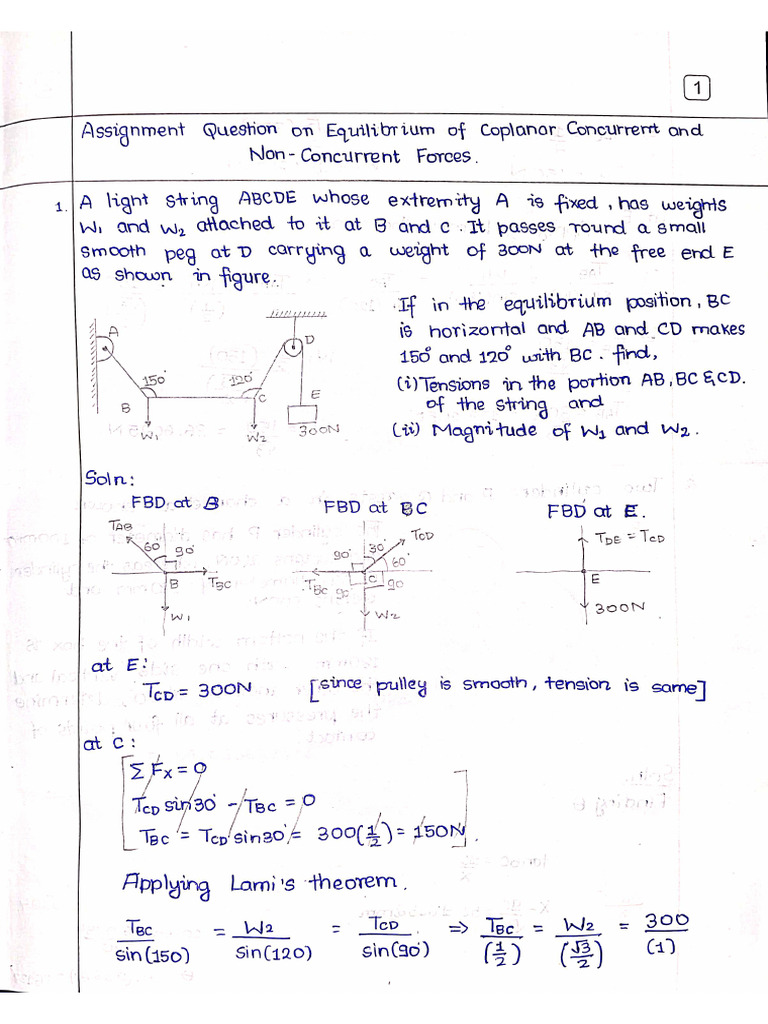 1
Assignment Question on Equilibrium of Coplanar Concurrent and
Non-Concurrent Forces.
1. A light string ABCDE whose extremity A is fixed, has weights
W1 and W2 attached to it at B and C. It passes round a small
smooth peg at D carrying a weight of 300N at the free end E
as shown in figure.
If in the equilibrium position, BC
is horizontal and AB and CD makes
150° and 120° with BC. find,
(i) Tensions in the portion AB, BC & CD.
of the string and
(ii) Magnitude of W1 and W2.
A
D
150°
120°
B
C
E
W1
W2
300N
Soln:
FBD at B
FBD at BC
FBD at E.
TAB
60°
90°
B
TBC
W1
TCD
90°
30°
60°
TBC
C
90°
90
W2
TDE = TCD
E
300N
at E:
TCD = 300N [since pulley is smooth, tension is same]
at C:
Σ Fx = 0
TCD sin30° - TBC = 0
TBC = TCD sin30° = 300(1/2) = 150N.
Applying Lami's theorem.
TBC/sin(150) = W2/sin(120) = TCD/sin(90°) => TBC/(1/2) = W2/(√3/2) = 300/(1)